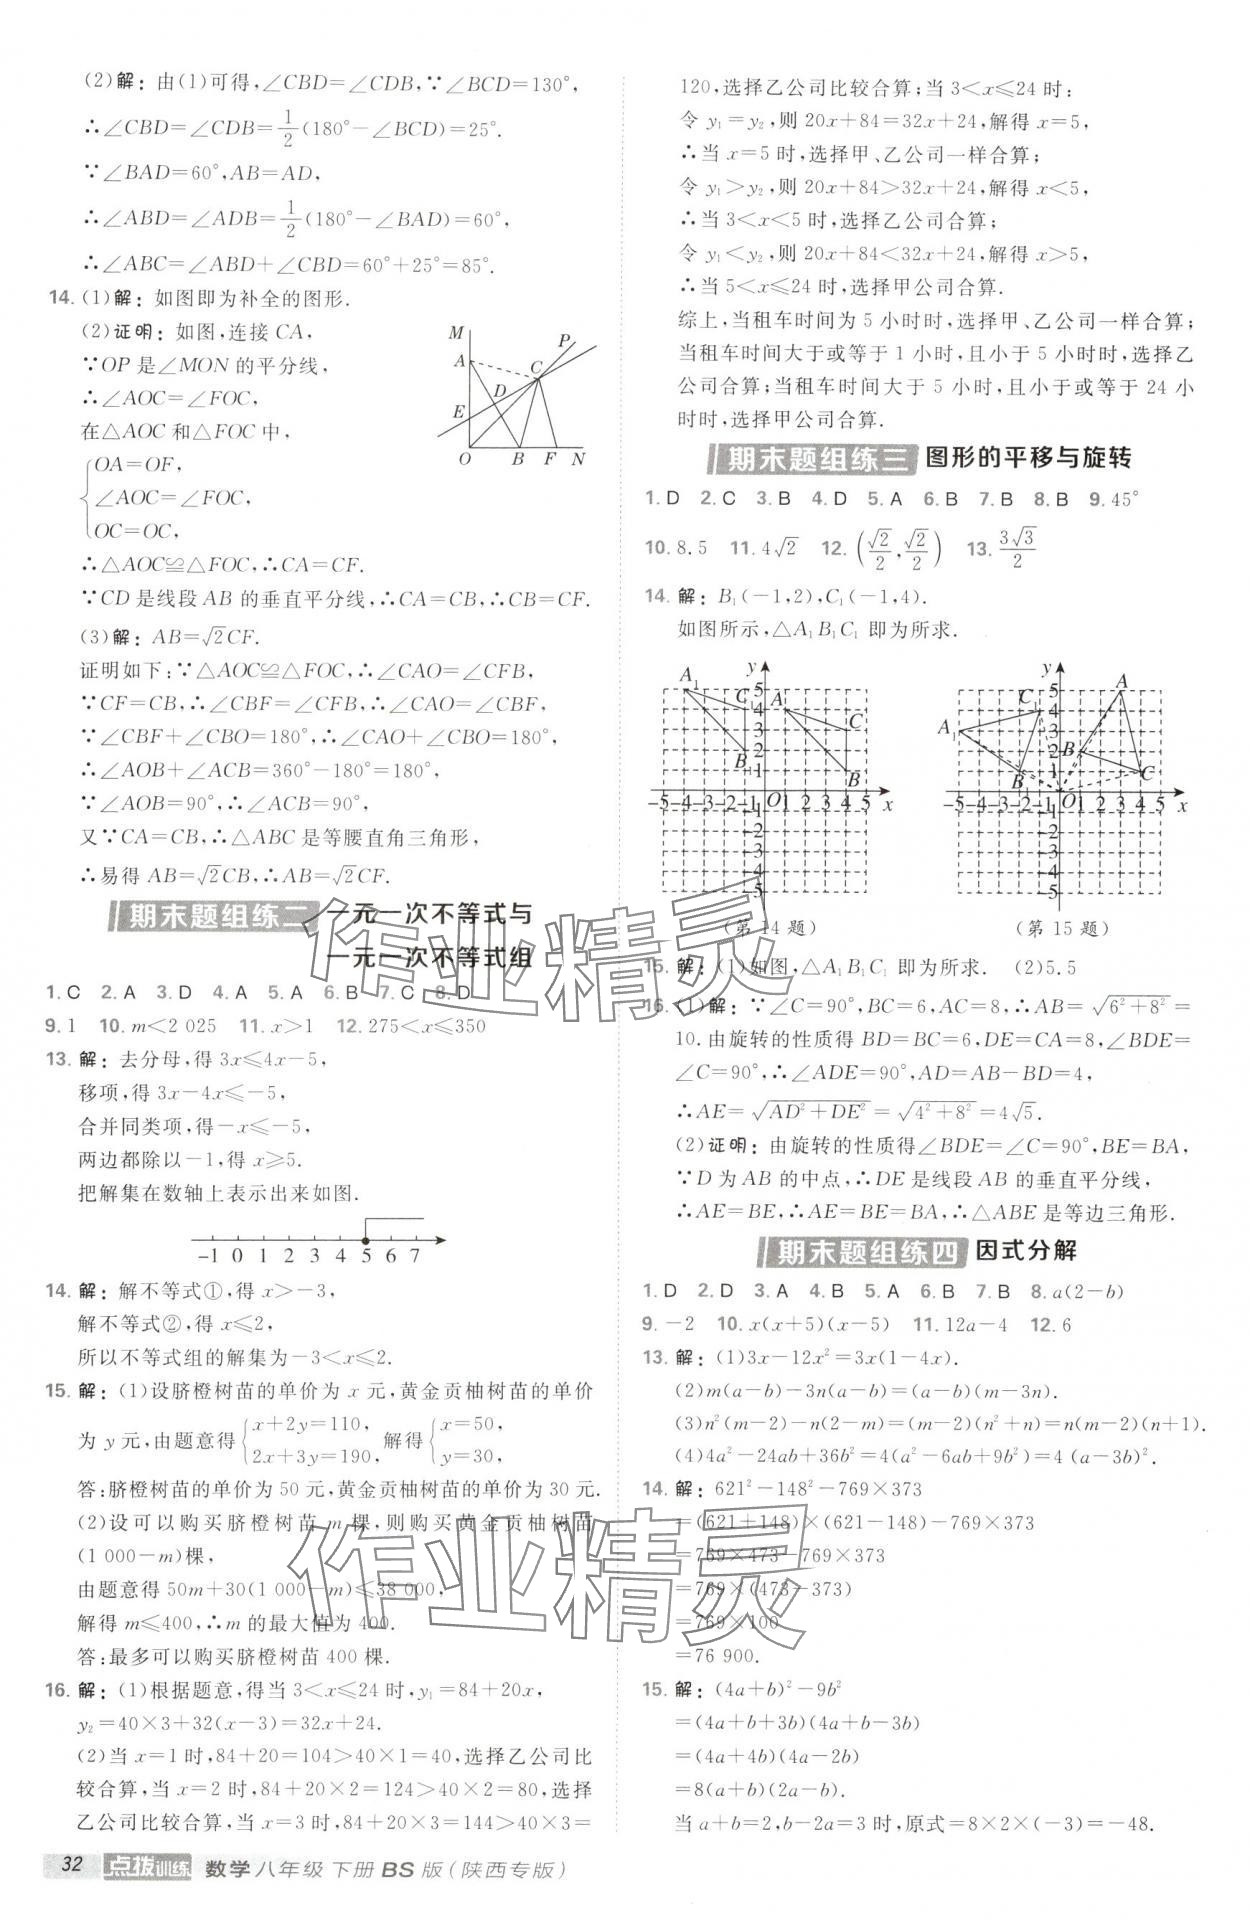 (2)解：由(1)可得,∠CBD=∠CDB,∵∠BCD=130°,
∴∠CBD=∠CDB=1/2(180°-∠BCD)=25°.
∵∠BAD=60°,AB=AD,
∴∠ABD=∠ADB=1/2(180°-∠BAD)=60°,
∴∠ABC=∠ABD+∠CBD=60°+25°=85°.
14. (1)解：如图即为补全的图形.
(2)证明：如图,连接 CA,
∵OP 是∠MON 的平分线,
∴∠AOC=∠FOC,
在△AOC 和△FOC 中,
OA=OF,
∠AOC=∠FOC,
OC=OC,
M
P
A
C
D
E
O B F N
∴△AOC≌△FOC,∴CA=CF.
∵CD 是线段 AB 的垂直平分线,∴CA=CB,∴CB=CF.
(3)解：AB=√2CF.
证明如下:∵△AOC≌△FOC,∴∠CAO=∠CFB,
∵CF=CB,∴∠CBF=∠CFB,∴∠CAO=∠CBF,
∵∠CBF+∠CBO=180°,∴∠CAO+∠CBO=180°,
∴∠AOB+∠ACB=360°-180°=180°,
∵∠AOB=90°,∴∠ACB=90°,
又∵CA=CB,∴△ABC 是等腰直角三角形,
∴易得 AB=√2CB,∴AB=√2CF.
期末题组练二 一元一次不等式与
一元一次不等式组
1. C 2. A 3. D 4. A 5. A 6. B 7. C 8. D
9. 1 10. m<2 025 11. x>1 12. 275<x≤350
13. 解：去分母,得 3x≤4x-5,
移项,得 3x-4x≤-5,
合并同类项,得-x≤-5,
两边都除以-1,得 x≥5.
把解集在数轴上表示出来如图.
-1 0 1 2 3 4 5 6 7
14. 解：解不等式①,得 x>-3,
解不等式②,得 x≤2,
所以不等式组的解集为-3<x≤2.
15. 解：(1)设脐橙树苗的单价为 x 元,黄金贡柚树苗的单价
为 y 元,由题意得{x+2y=110, 2x+3y=190, 解得{x=50, y=30,
答:脐橙树苗的单价为 50 元,黄金贡柚树苗的单价为 30 元.
(2)设可以购买脐橙树苗 m 棵,则购买黄金贡柚树苗
(1 000-m)棵,
由题意得 50m+30(1 000-m)≤38 000,
解得 m≤400,∴m 的最大值为 400.
答:最多可以购买脐橙树苗 400 棵.
16. 解：(1)根据题意,得当 3<x≤24 时,y₁=84+20x,
y₂=40×3+32(x-3)=32x+24.
(2)当 x=1 时,84+20=104>40×1=40,选择乙公司比
较合算,当 x=2 时,84+20×2=124>40×2=80,选择
乙公司比较合算,当 x=3 时,84+20×3=144>40×3=
120,选择乙公司比较合算;当 3<x≤24 时:
令 y₁=y₂,则 20x+84=32x+24,解得 x=5,
∴当 x=5 时,选择甲、乙公司一样合算;
令 y₁>y₂,则 20x+84>32x+24,解得 x<5,
∴当 3<x<5 时,选择乙公司合算;
令 y₁<y₂,则 20x+84<32x+24,解得 x>5,
∴当 5<x≤24 时,选择甲公司合算.
综上,当租车时间为 5 小时时,选择甲、乙公司一样合算;
当租车时间大于或等于 1 小时,且小于 5 小时时,选择乙
公司合算;当租车时间大于 5 小时,且小于或等于 24 小
时时,选择甲公司合算.
期末题组练三 图形的平移与旋转
1. D 2. C 3. B 4. D 5. A 6. B 7. B 8. B 9. 45°
10. 8.5 11. 4√2 12. (√2/2,√2/2) 13. 3√3/2
14. 解：B₁(-1,2),C₁(-1,4).
如图所示,△A₁B₁C₁ 即为所求.
y
A₁ 5
C₁ 4 A
3 C
2
B₁ 1 B
-5-4-3-2-1 O 1 2 3 4 5 x
-1
-2
-3
-4
-5
(第 14 题)
y
5 A
C₁ 4
A₁ 3
2 B
B₁ 1 C
-5-4-3-2-1 O 1 2 3 4 5 x
-1
-2
-3
-4
-5
(第 15 题)
15. 解：(1)如图,△A₁B₁C₁ 即为所求. (2)5.5
16. (1)解：∵∠C=90°,BC=6,AC=8,∴AB=√(6²+8²)=
10.由旋转的性质得 BD=BC=6,DE=CA=8,∠BDE=
∠C=90°,∴∠ADE=90°,AD=AB-BD=4,
∴AE=√(AD²+DE²)=√(4²+8²)=4√5.
(2)证明：由旋转的性质得∠BDE=∠C=90°,BE=BA,
∵D 为 AB 的中点,∴DE 是线段 AB 的垂直平分线,
∴AE=BE,∴AE=BE=BA,∴△ABE 是等边三角形.
期末题组练四 因式分解
1. D 2. D 3. A 4. B 5. A 6. B 7. B 8. a(2-b)
9. -2 10. x(x+5)(x-5) 11. 12a-4 12. 6
13. 解：(1)3x-12x²=3x(1-4x).
(2)m(a-b)-3n(a-b)=(a-b)(m-3n).
(3)n²(m-2)-n(2-m)=(m-2)(n²+n)=n(m-2)(n+1).
(4)4a²-24ab+36b²=4(a²-6ab+9b²)=4(a-3b)².
14. 解：621²-148²-769×373
=(621+148)×(621-148)-769×373
=769×473-769×373
=769×(473-373)
=769×100
=76 900.
15. 解：(4a+b)²-9b²
=(4a+b+3b)(4a+b-3b)
=(4a+4b)(4a-2b)
=8(a+b)(2a-b).
当 a+b=2,b-2a=3 时,原式=8×2×(-3)=-48.
作业精灵
作业精灵
32 点拨训练 数学 八年级 下册 BS 版(陕西专版)